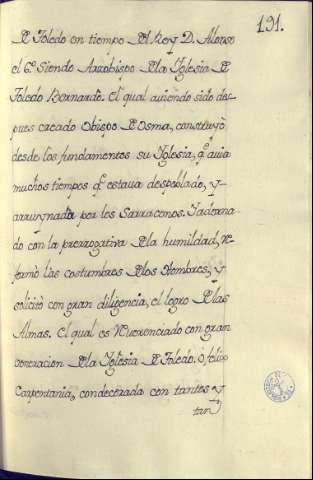 191.
de Toledo en tiempo del Rey D. Alonso
el 6º Siendo Arzobispo de la Iglesia de
Toledo Bernardo. El qual auiendo sido des
pues creado Obispo de Osma, construyò
desde los fundamentos su Iglesia, q̃ auia
muchos tiempos q̃ estaua despoblado, y
arruynada por los Sarracenos. Iaderna
do con la prerrogativa de la humildad, re
formò las costumbres de los Hombres, y
solicitò con gran diligencia, el logro de las
Almas. El qual es Reuerenciado con gran
veneracion de la Iglesia de Toledo. O felix
Carpentania, condecorada con tantos y
tan